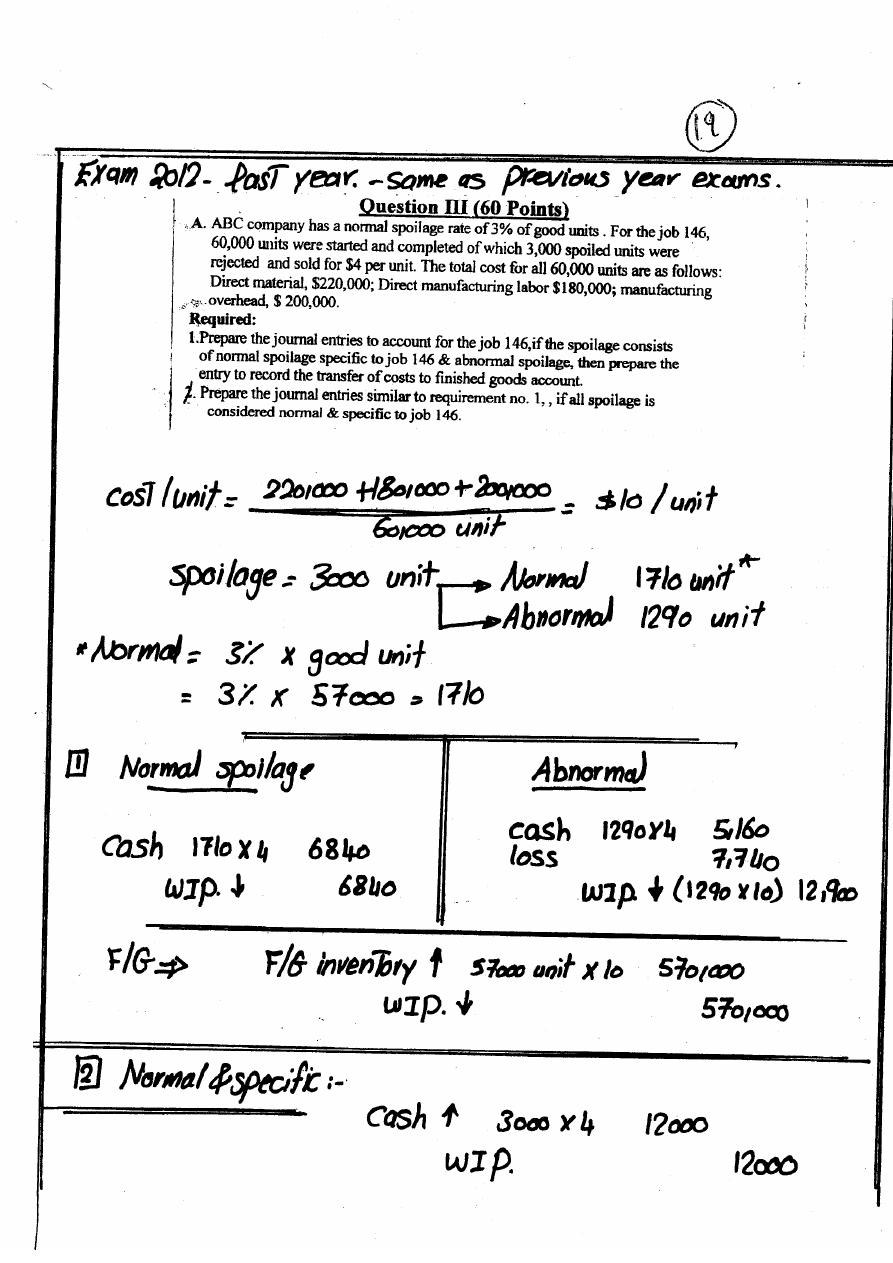 19
Exam 2012- last year. - same as previous year exams.
Question III (60 Points)
A. ABC company has a normal spoilage rate of 3% of good units . For the job 146,
60,000 units were started and completed of which 3,000 spoiled units were
rejected and sold for $4 per unit. The total cost for all 60,000 units are as follows:
Direct material, $220,000; Direct manufacturing labor $180,000; manufacturing
overhead, $ 200,000.
Required:
1.Prepare the journal entries to account for the job 146,if the spoilage consists
of normal spoilage specific to job 146 & abnormal spoilage, then prepare the
entry to record the transfer of costs to finished goods account.
2. Prepare the journal entries similar to requirement no. 1, , if all spoilage is
considered normal & specific to job 146.
cost/unit = 220,000 + 180,000 + 200,000 = $10 / unit
60,000 unit
spoilage = 3000 unit → Normal 1710 unit*
→ Abnormal 1290 unit
* Normal = 3% x good unit
= 3% x 57000 = 1710
1 Normal spoilage
Cash 1710 x 4 6840
WIP. ↓ 6840
Abnormal
cash 1290x4 5,160
loss 7,740
WIP. ↓ (1290 x 10) 12,900
F/G ⇒ F/G inventory ↑ 57000 unit x 10 570,000
WIP. ↓ 570,000
2 Normal & specific :-
Cash ↑ 3000 x 4 12000
WIP. 12000